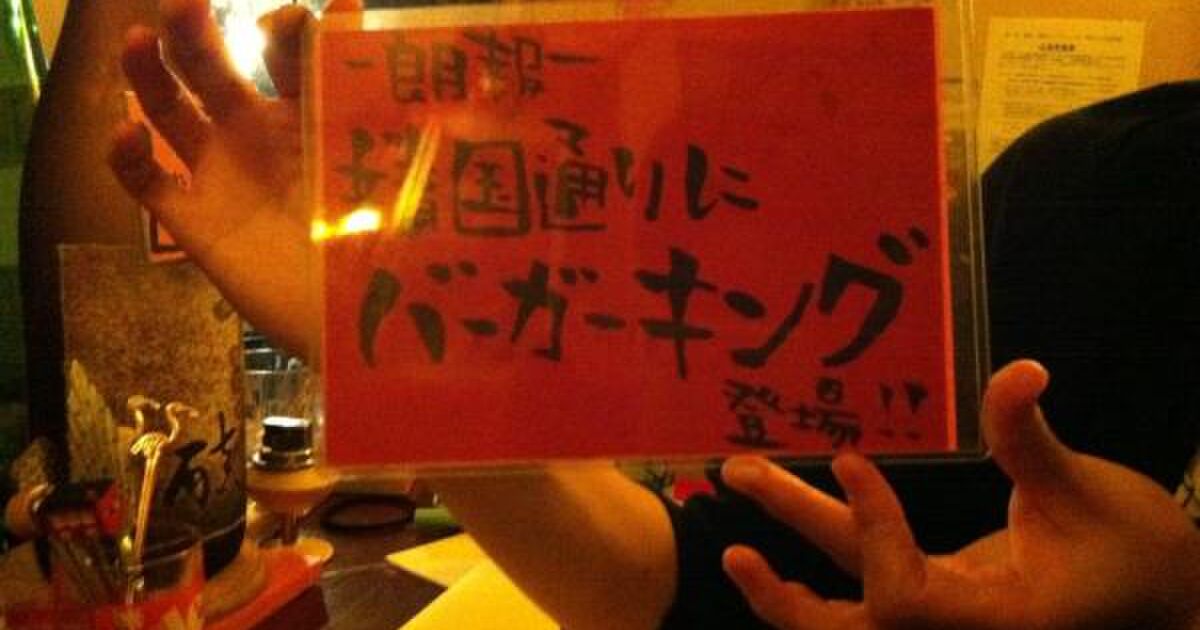 -朗報-
靖国通りに
バーガーキング
登場!!